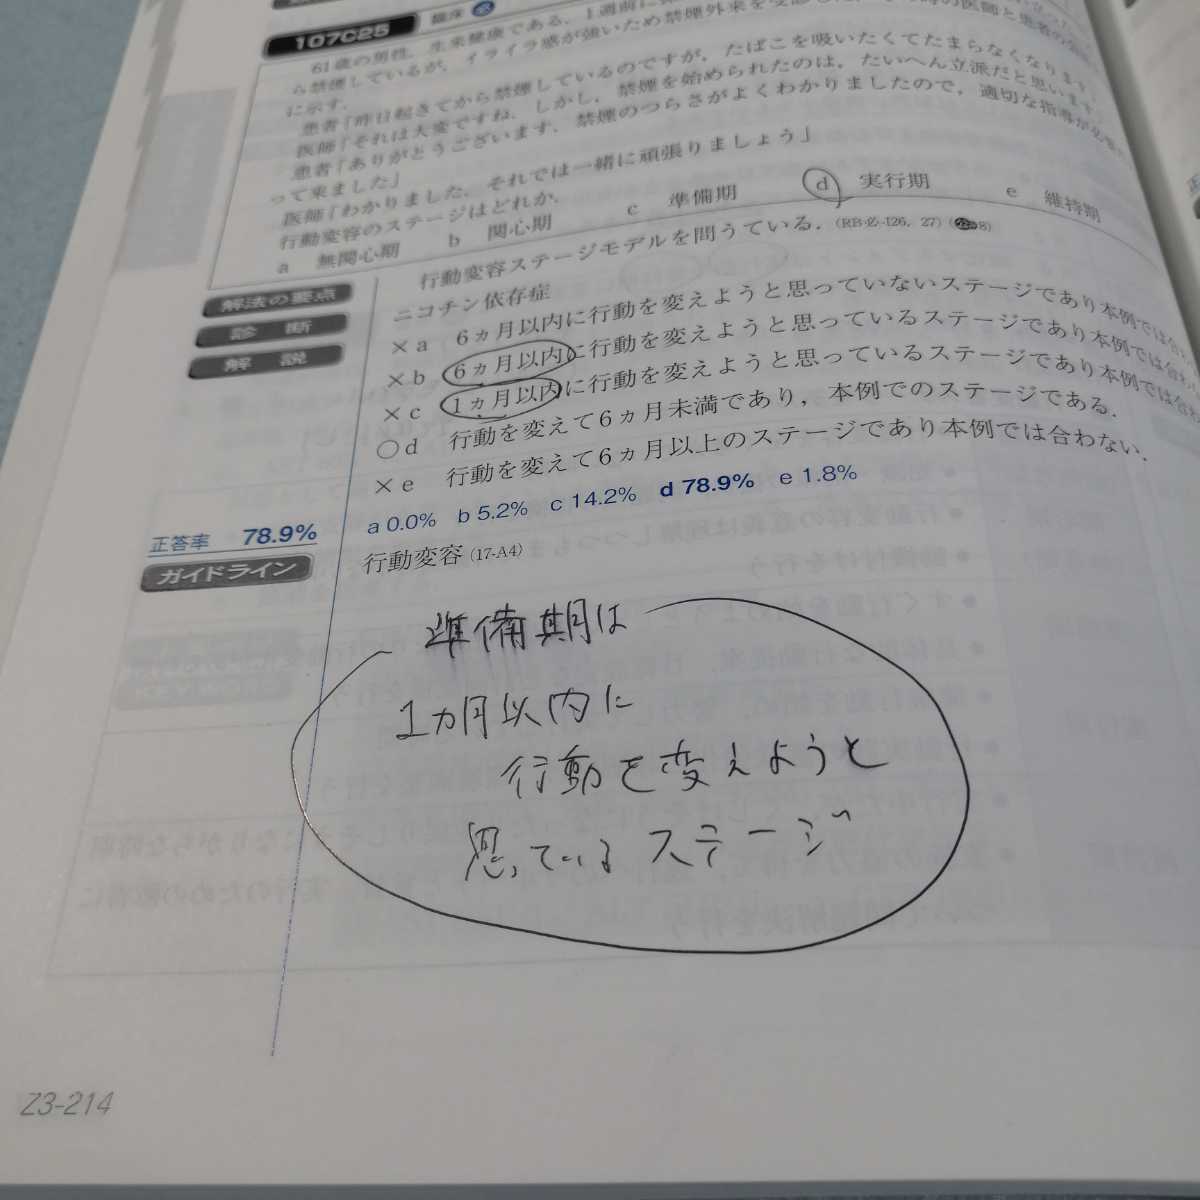 107C25 臨床 必
61歳の男性．生来健康である．1週前に
ら禁煙しているが，イライラ感が強いため禁煙外来を受診した．
に示す．
患者「昨日起きてから禁煙しているのですが，たばこを吸いたくてたまらなくなります」
医師「それは大変ですね．しかし，禁煙を始められたのは，たいへん立派だと思います」
患者「ありがとうございます．禁煙のつらさがよくわかりましたので，適切な指導が必要
って来ました」
医師「わかりました．それでは一緒に頑張りましょう」
行動変容のステージはどれか．
a 無関心期 b 関心期 c 準備期 d 実行期 e 維持期
解法の要点 行動変容ステージモデルを問うている．(RB-必-I26，27)
診断 ニコチン依存症
解説 ×a 6ヵ月以内に行動を変えようと思っていないステージであり本例では合わ
×b 6ヵ月以内に行動を変えようと思っているステージであり本例では合わ
×c 1ヵ月以内に行動を変えようと思っているステージであり本例では合わ
○d 行動を変えて6ヵ月未満であり，本例でのステージである．
×e 行動を変えて6ヵ月以上のステージであり本例では合わない．
正答率 78.9% a 0.0% b 5.2% c 14.2% d 78.9% e 1.8%
ガイドライン 行動変容 (17-A4)
準備期は
1カ月以内に
行動を変えようと
思っているステージ
Z3-214